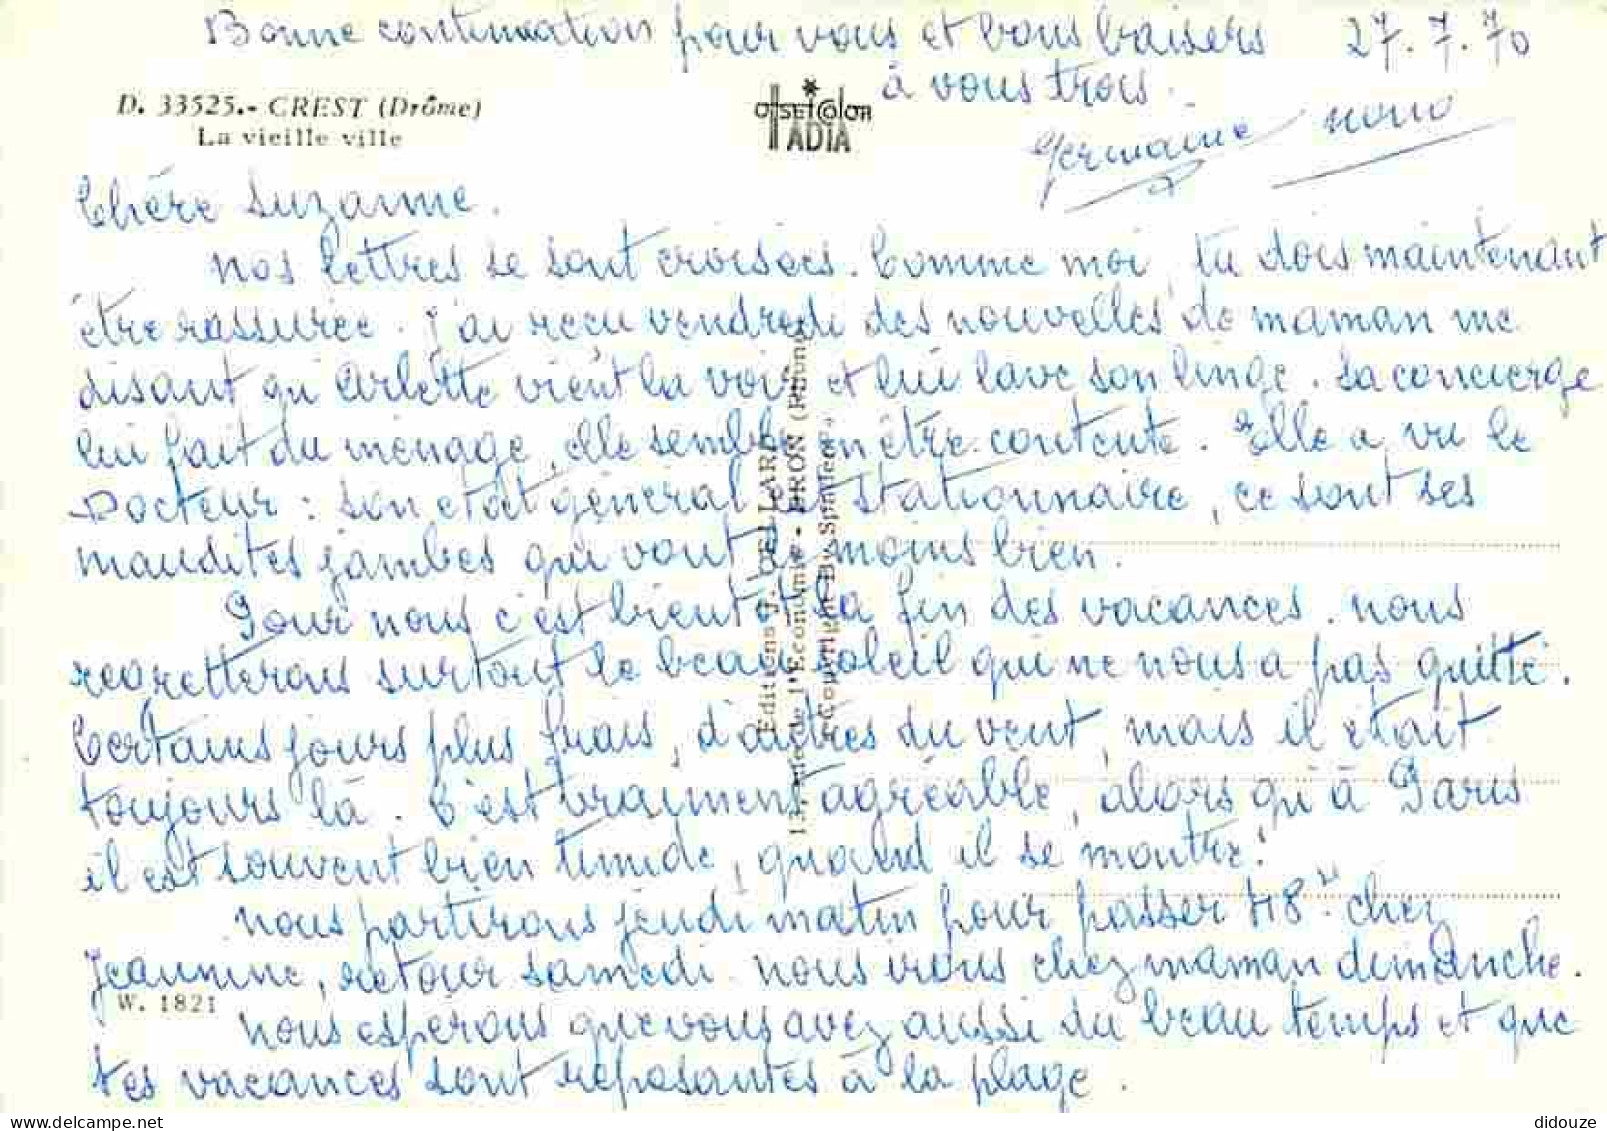 Bonne continuation pour vous et bons baisers 27.7.70
à vous trois.
Germaine nono
D. 33525.- CREST (Drôme)
La vieille ville
OffSETCOlOR
IADIA
Chère Suzanne.
Nos lettres se sont croisées. Comme moi, tu dois maintenant
être rassurée. J'ai reçu vendredi des nouvelles de maman me
disant qu'Arlette vient la voir et lui lave son linge. Sa concierge
lui fait du ménage, elle semble en être contente. Elle a vu le
Docteur : son état général est stationnaire, ce sont ses
maudites jambes qui vont le moins bien.
Pour nous c'est bientôt la fin des vacances. Nous
regretterons surtout le beau soleil qui ne nous a pas quitté.
Certains jours plus frais, d'autres du vent, mais il était
toujours là. C'est vraiment agréable, alors qu'à Paris
il est souvent bien timide, quand il se montre!
Nous partirons jeudi matin pour passer 48 h chez
Jeannine, retour samedi. Nous irons chez maman dimanche.
Nous espérons que vous avez aussi du beau temps et que
tes vacances sont reposantes à la plage.
W. 1821
Editions J. CELLARD
de l'Economie - BRON (Rhône)
Copyright By Spadem
didouze